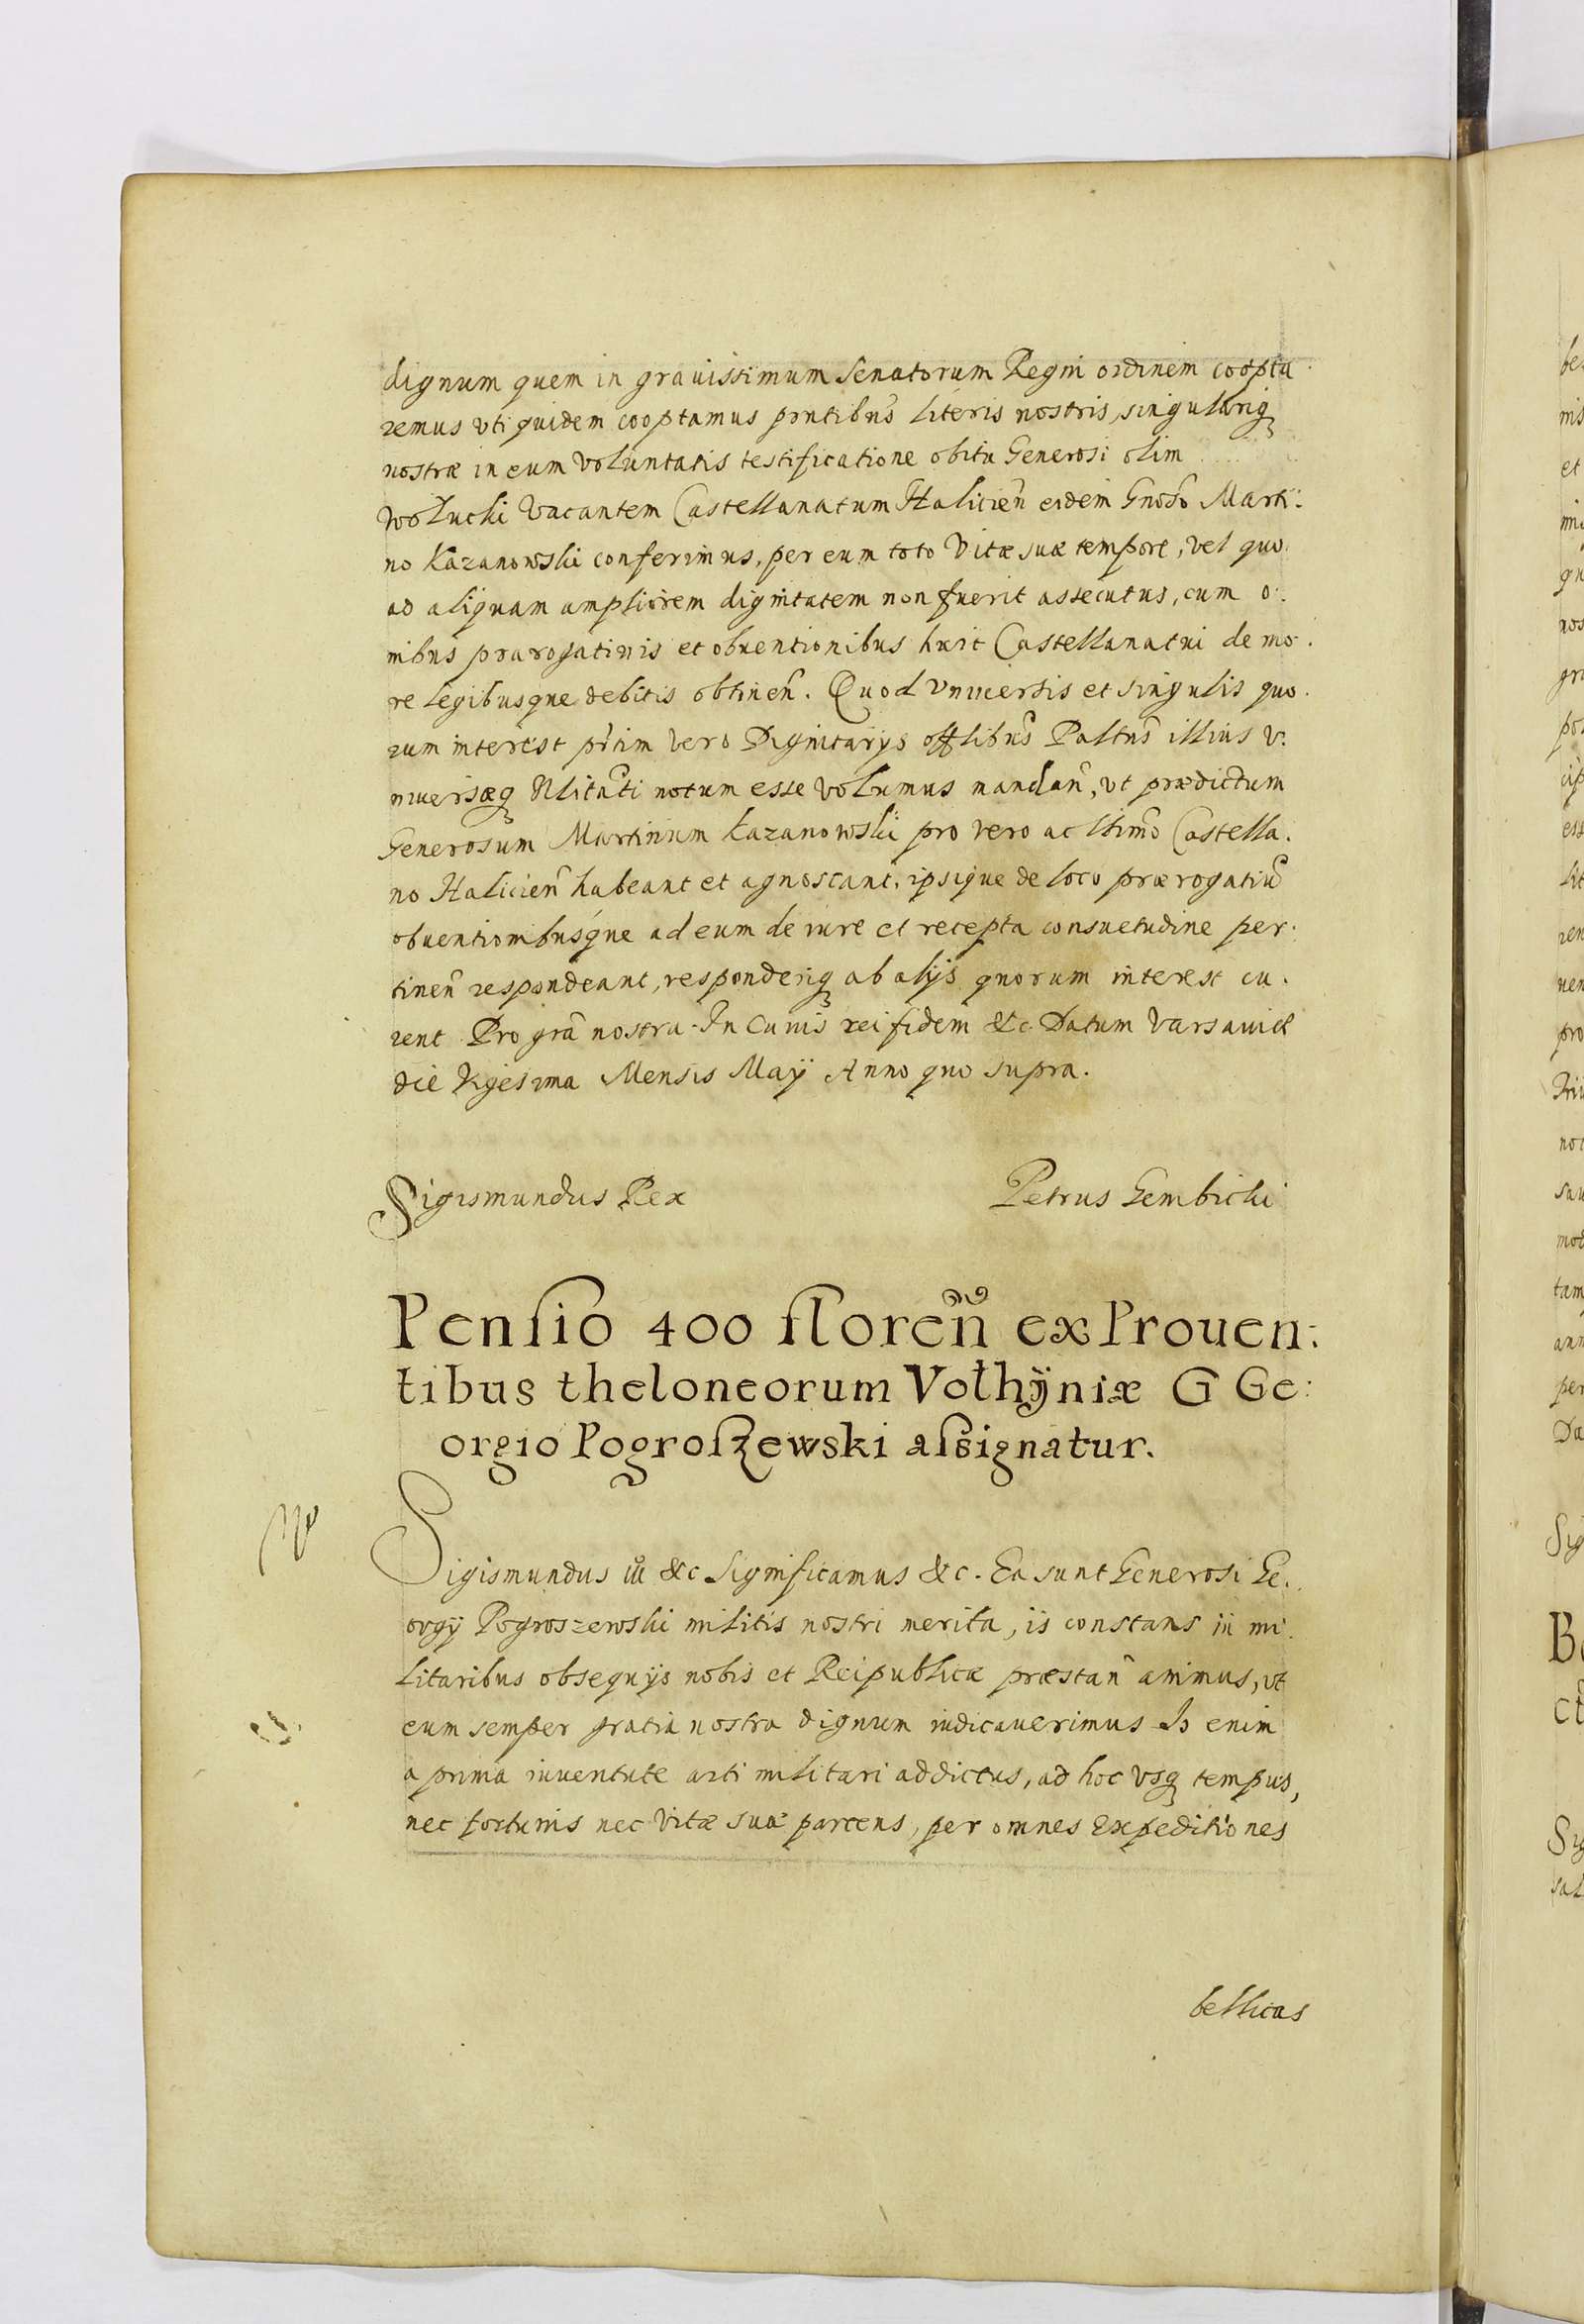 dignum quem in grauissimum Senatorum Regni ordinem coopta
remus vti quidem cooptamus pntibus literis nostris, singulariq
nostræ in eum voluntatis testificatione obitu Generosi olim
Wołucki vacantem Castellanatum Halicien eidem Gnoso Marti:
no Kazanowski conferimus, per eum toto vitæ suæ tempore, vel quo
ad aliquam ampliorem dignitatem non fuerit assecutus, cum o:
nibus prærogatiuis et obuentionibus huic Castellanatui de mo:
re legibusque debitis obtinen. Quod vniuersis et singulis quo
rum interest prtim vero Dignitarijs offlibus Paltus illius v:
niuersæq Nlitati notum esse volumus mandan, vt prædictum
Generosum Martinum Kazanowski pro vero ac ltimo Castella.
no Halicien habeant et agnoscant, ipsique de loco prærogatiu
obuentionibusque ad eum de iure et recepta consuetudine per.
tinen respondeant, responderiq ab alijs quorum interest cu.
rent Pro gra nostra. In Cuius rei fidem &c Datum Varsauiæ
die Vigesima Mensis Maij Anno quo supra.
Sigismundus Rex Petrus Gembicki
Pensio 400 floren ex Prouen:
tibus theloneorum Vołhÿniæ G Ge:
orgio Pogroszewski assignatur.
Sigismundus iii &c Significamus &c. Ea sunt Generosi Ge.
orgij Pogroszewski militis nostri merita, is constans in mi.
litaribus obsequijs nobis et Reipublicæ præstan animus, vt
eum semper gratia nostra dignum iudicauerimus Is enim
a prima iuuentute arti militari addictus, ad hoc vsq tempus,
nec fortunis nec vitæ suæ parcens, per omnes Expeditiones
bellicas